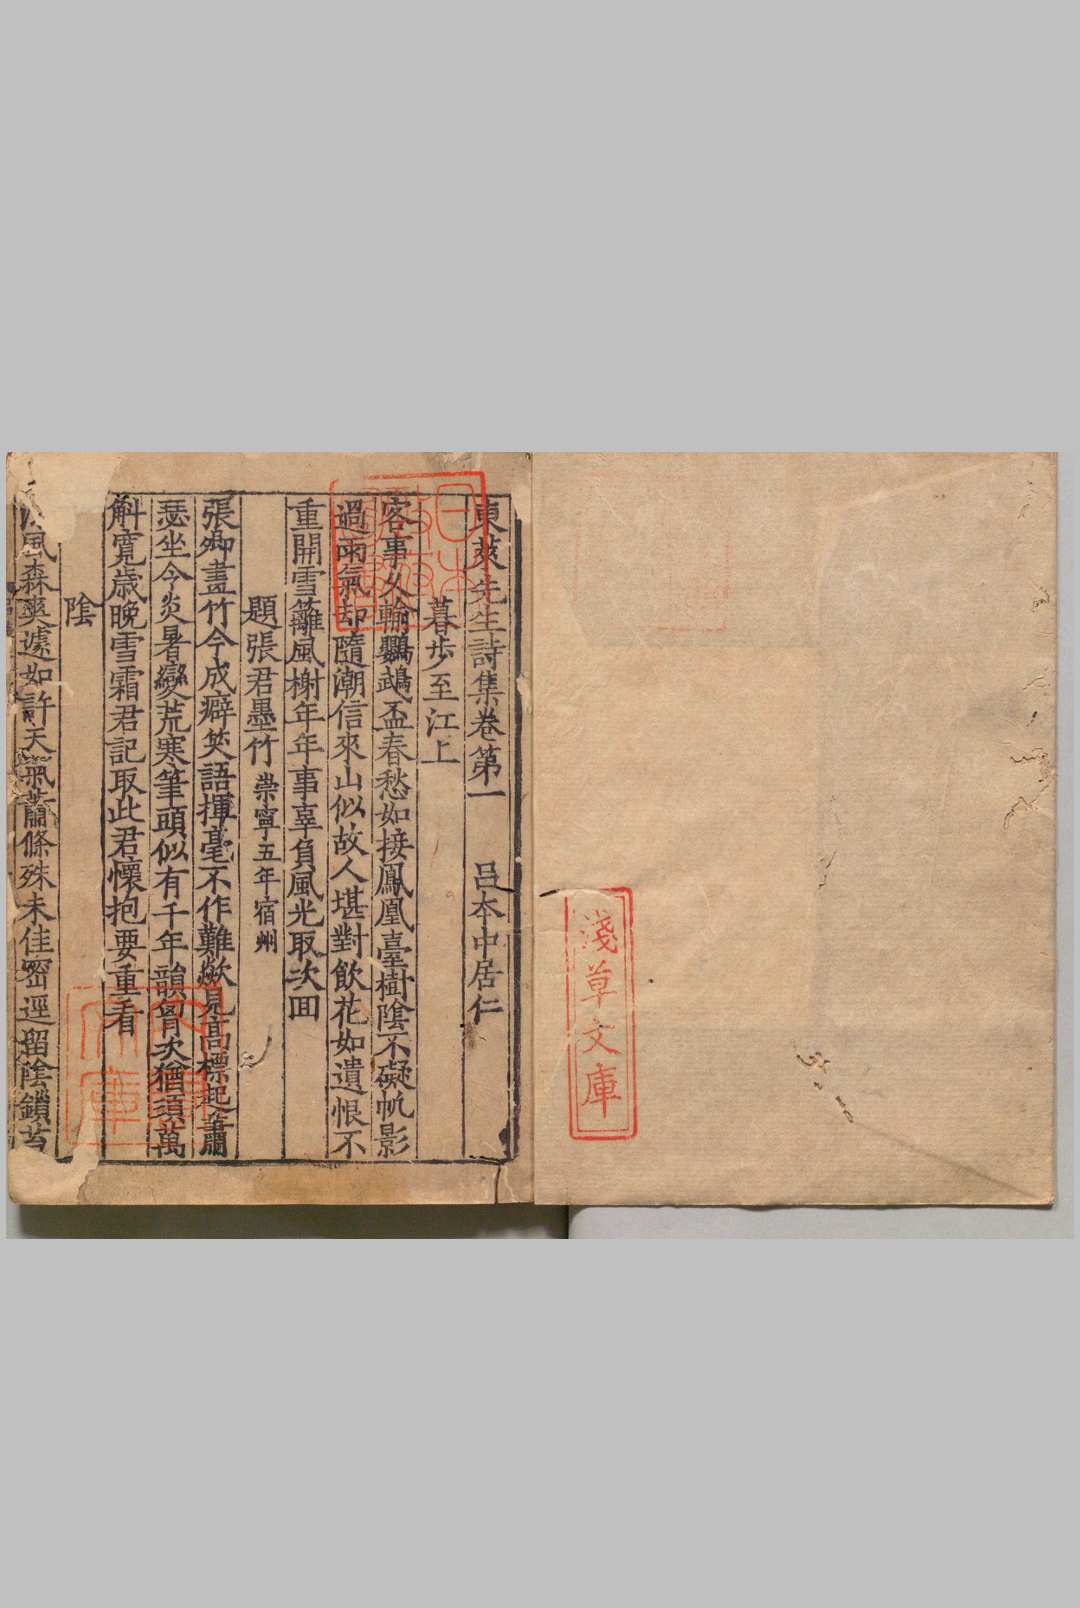 東萊先生詩集卷第一　呂本中居仁
暮步至江上
客事久輸鸚鵡盃春愁如接鳳凰臺樹隂不礙帆影
過雨氣却隨潮信來山似故人堪對飲花如遺恨不
重開雪籬風榭年年事辜負風光取次回
題張君墨竹 崇寧五年宿州
張卿畫竹今成癖笑語揮毫不作難歘見高標起蕭
瑟坐令炎暑變荒寒筆頭似有千年韻胷次猶須萬
斛寛歳晚雪霜君記取此君懷抱要重看
隂
風森爽遽如許天氣蕭條殊未佳密逕留隂鎖苔
淺草文庫
日本
文庫